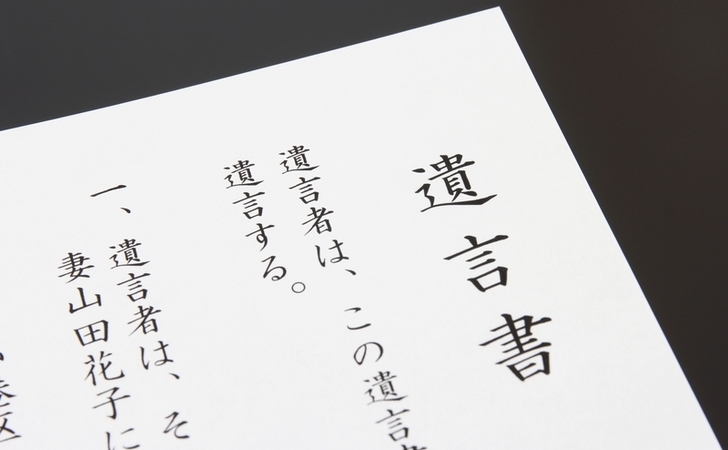 遺言書
遺言者は、この遺言
遺言する。
一、遺言者は、そ
妻山田花子に
区